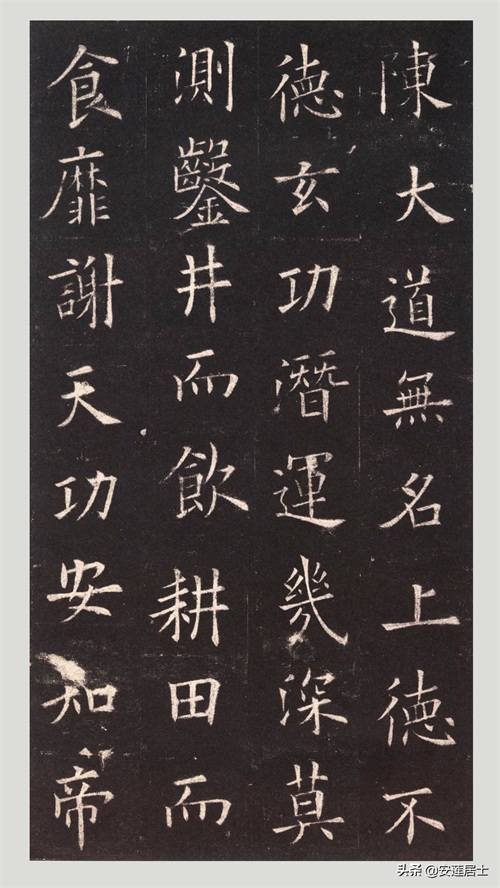 陳大道無名上徳不
徳玄功潛運幾深莫
測鑿井而飲耕田而
食靡謝天功安知帝
头条 @安莲居士